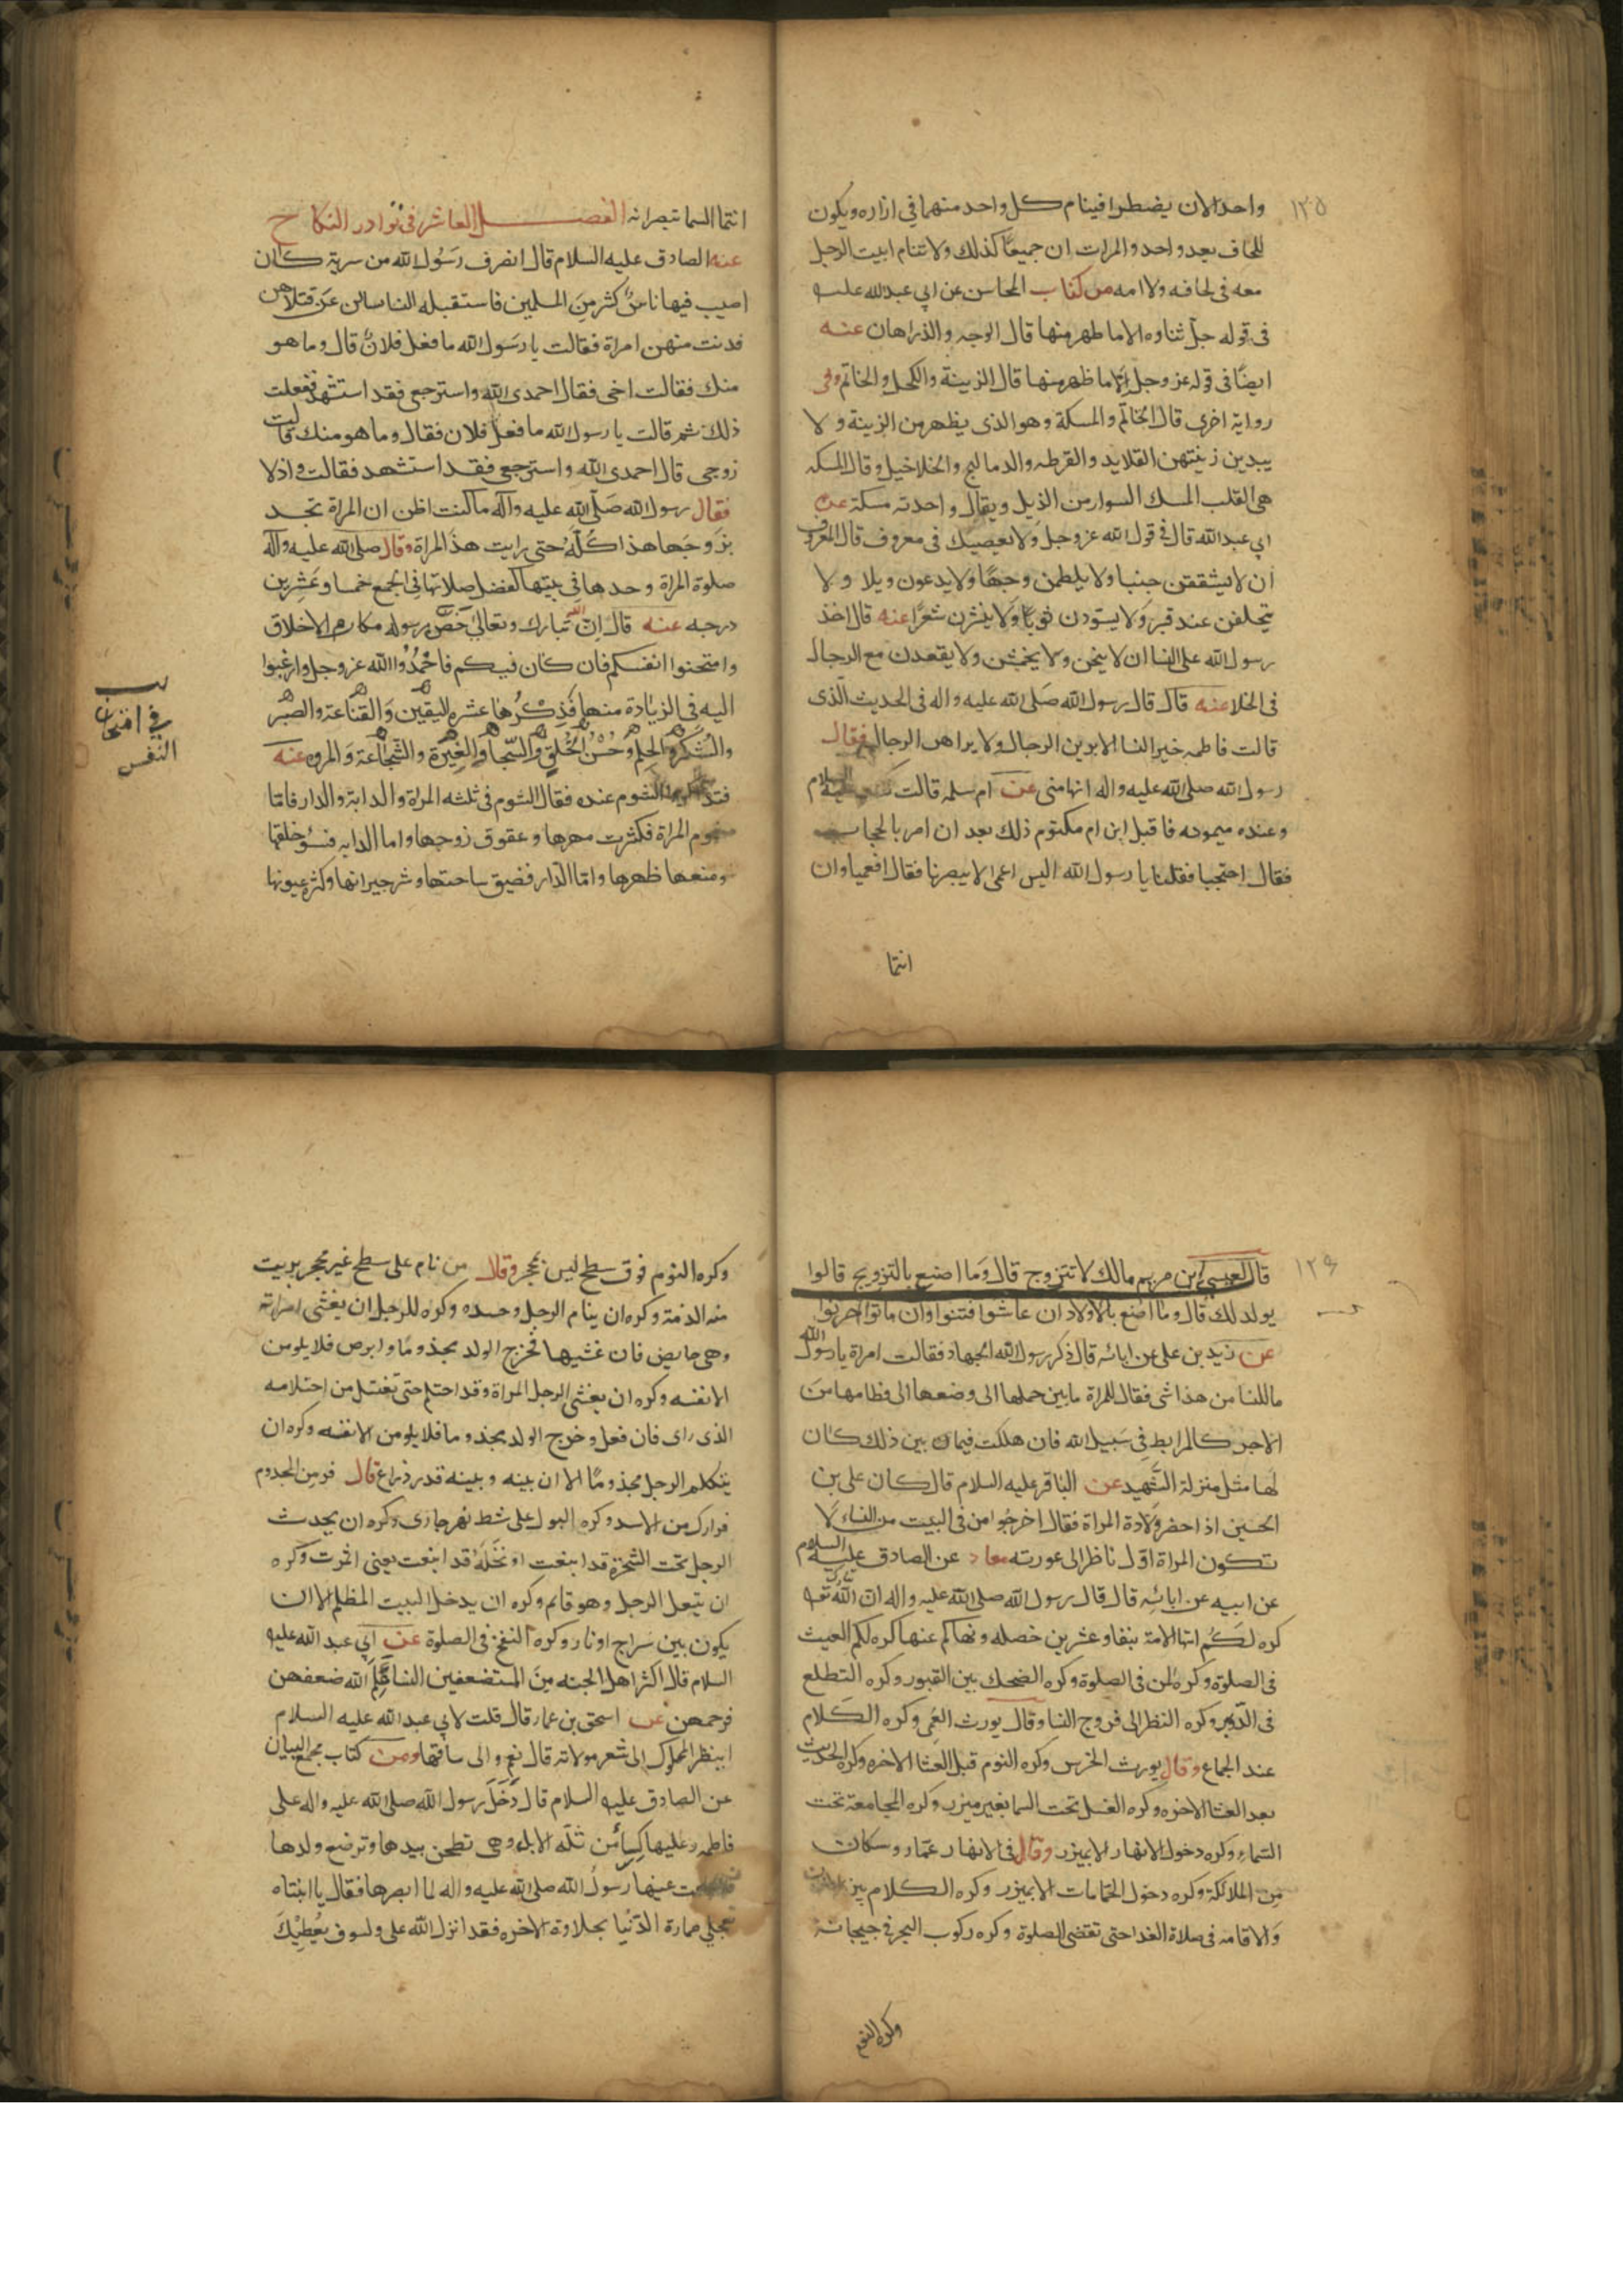 ١٢٥
واحد الا ان يضطرا فينام كل واحد منهما في ازاره ويكون
اللحاف بعد واحد والمرات ان جميعا كذلك ولا تنام ابيت الرجل
معه في لحافه ولا امه من كتاب المحاسن عن ابي عبد الله عليه
في قوله جل ثناوه الا ما ظهر منها قال الوجه والذراهان عنه
ايضا في قوله عز وجل الا ما ظهر منها قال الزينة والكحل والخاتم وفي
رواية اخرى قال الخاتم والمسكة وهو الذي يظهر من الزينة ولا
يبدين زينتهن القلايد والقرطه والدماليج والخلاخيل وقال المسكه
هي القلب المسك السوار من الذيل ويقال واحدته مسكة عن
ابي عبد الله قال في قول الله عز وجل ولا يعصينك في معروف قال المعروف
ان لا يشققن جنبا ولا يلطمن وجها ولا يدعون ويلا ولا
يتخلفن عند قبر ولا يسودن ثوبا ولا ينشرن شعرا عنه قال اخذ
رسول الله على النسا ان لا ينحن ولا يخمشن ولا يقعدن مع الرجال
في الخلا عنه قال قال رسول الله صلى الله عليه واله في الحديث الذي
قالت فاطمه خير النسا الا يرين الرجال ولا يراهن الرجال فقال
رسول الله صلى الله عليه واله انها مني عن ام سلمه قالت
وعنده ميمونه فاقبل ابن ام مكتوم ذلك بعد ان امر بالحجاب
فقال احتجبا فقلنا يا رسول الله اليس اعمى لا يبصرنا فقال افعميا وان
انتما
انتما الستما تبصرانه الفصل العاشر في نوادر النكاح
عنه الصادق عليه السلام قال انصرف رسول الله من سرية كان
اصيب فيها ناس كثير من المسلمين فاستقبله النسا سالن عن قتلاهن
فدنت منهن امراة فقالت يا رسول الله ما فعل فلان قال وما هو
منك فقالت اخي فقال احمدي الله واسترجعي فقد استشهد ففعلت
ذلك ثم قالت يا رسول الله ما فعل فلان فقال وما هو منك قالت
زوجي قال احمدي الله واسترجعي فقد استشهد فقالت واذلا
فقال رسول الله صلى الله عليه وآله ما كنت اظن ان المراة تجد
بزوجها هذا كله حتى رايت هذه المراة وقال صلى الله عليه وآله
صلوة المراة وحدها في بيتها كفضل صلاتها في الجمع خمسا وعشرين
درجه عنه قال ان الله تبارك وتعالى خص رسوله مكارم الاخلاق
وامتحنوا انفسكم فان كان فيكم فاحمدوا الله عز وجل وارغبوا
اليه في الزيادة منها فذكرها عشره اليقين والقناعة والصبر
والشكر والحلم وحسن الخلق والسخا والغيرة والشجاعة والمروه عنه
الشوم عنده فقال الشوم في ثلثه المراة والدابة والدار فاما
شوم المراة فكثرت مهرها وعقوق زوجها واما الدابه فسؤ خلقها
ومنعها ظهرها واما الدار فضيق ساحتها وشر جيرانها وكثره عيوبها
في امتحان
النفس
١٢٦
قال لعيسى ابن مريم مالك لا تتزوج قال وما اصنع بالتزويج قالوا
يولد لك قال وما اصنع بالاولاد ان عاشوا فتنوا وان ماتوا احزنوا
عن زيد بن علي عن ابائه قال ذكر رسول الله الجهاد فقالت امراة يا رسول الله
ما للنسا من هذا شي فقال للمراة ما بين حملها الى وضعها الى فطامها من
الاجر كالمرابط في سبيل الله فان هلكت فيما بين ذلك كان
لها مثل منزلة الشهيد عن الباقر عليه السلام قال كان علي بن
الحسين اذا حضر ولادة المراة فقال اخرجوا من في البيت من النساء لا
تكون المراة اول ناظر الى عورته عن الصادق عليه السلام
عن ابيه عن ابائه قال قال رسول الله صلى الله عليه واله ان الله
كره لكم ايتها الامة نيفا وعشرين خصله ونهاكم عنها كره لكم العبث
في الصلوة وكره المن في الصلوة وكره الضحك بين القبور وكره التطلع
في الدور وكره النظر الى فروج النسا وقال يورث العمى وكره الكلام
عند الجماع وقال يورث الخرس وكره النوم قبل العشا الاخره وكره الحديث
بعد العشا الاخره وكره الغسل تحت السما بغير ميزر وكره المجامعة تحت
السماء وكره دخول الانهار الا بميزر وقال في الانهار عمار وسكان
من الملائكة وكره دخول الحمامات الا بميزر وكره الكلام بين
والاقامه في صلاة الغداه حتى تقضى الصلوة وكره ركوب البحر في هيجانه
وكره النوم
وكره النوم فوق سطح ليس بمحجر وقال من نام على سطح غير محجر بريت
منه الذمة وكره ان ينام الرجل وحده وكره للرجل ان يغشى امراته
وهي حايض فان غشيها فخرج الولد مجذوما او ابرص فلا يلومن
الا نفسه وكره ان يغشى الرجل المراة وقد احتلم حتى تغتسل من احتلامه
الذي راى فان فعل وخرج الولد مجذوما فلا يلومن الا نفسه وكره ان
يتكلم الرجل مجذوما الا ان بينه وبينه قدر ذراع قال فر من المجذوم
فرارك من الاسد وكره البول على شط نهر جارى وكره ان يحدث
الرجل تحت الشجرة قد اينعت او نخلة قد اينعت يعني اثمرت وكره
ان يتنعل الرجل وهو قايم وكره ان يدخل البيت المظلم الا ان
يكون بين سراج او نار وكره النفخ في الصلوة عن ابي عبد الله عليه
السلام قال اكثر اهل الجنه من المستضعفين النسا علم الله ضعفهن
فرحمهن عن اسحق بن عمار قال قلت لابي عبد الله عليه السلام
اينظر المملوك الى شعر مولاته قال نعم والى ساقها ومن كتاب مجمع البيان
عن الصادق عليه السلام قال دخل رسول الله صلى الله عليه واله على
فاطمه وعليها كساء من ثلة الابل وهي تطحن بيدها وترضع ولدها
عينها رسول الله صلى الله عليه واله لما ابصرها فقال يا ابنتاه
تعجلي مرارة الدنيا بحلاوة الاخره فقد انزل الله علي ولسوف يعطيك